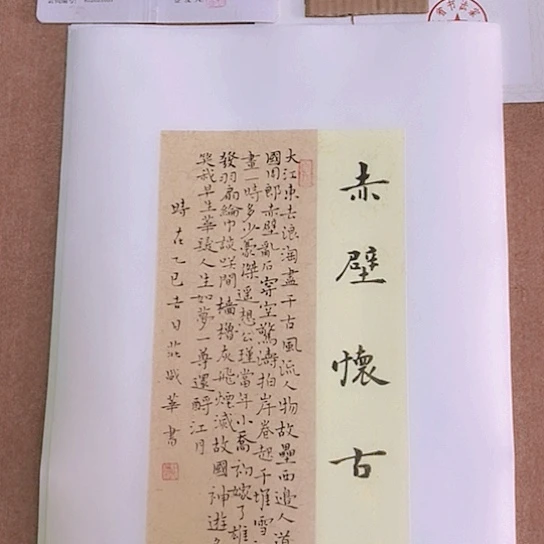 赤壁懷古
大江東去浪淘盡千古風流人物故壘西邊人道
國周郎赤壁亂石穿空驚濤拍岸卷起千堆雪
畫一時多少豪傑遥想公瑾當年小喬初嫁了雄
發羽扇綸巾談咲間檣櫓灰飛煙滅故國神遊
笑我早生華髮人生如夢一尊還酹江月
時在乙巳吉日
華書